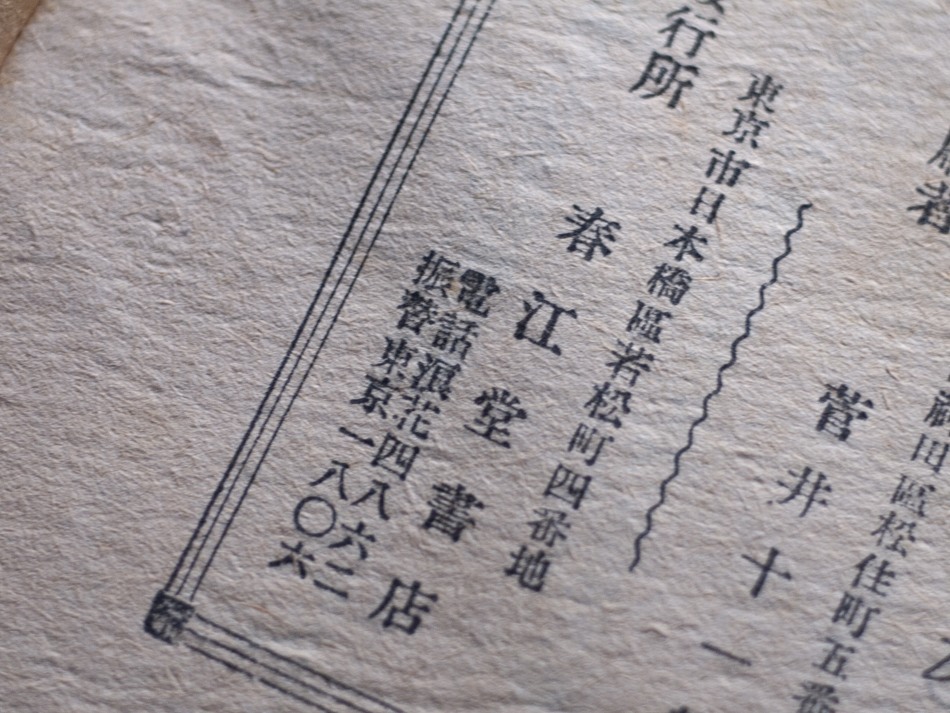 者
田區松住町五番
菅井十一
東京市日本橋區若松町四番地
行所
春江堂書店
電話浪花四八六二
振替東京一八〇六